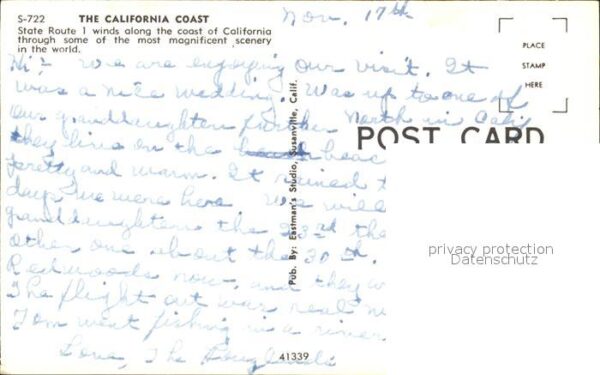 S-722 THE CALIFORNIA COAST
State Route 1 winds along the coast of California
through some of the most magnificent scenery
in the world.
Nov. 17th
PLACE
STAMP
HERE
Hi! We are enjoying our visit. It
was a nice wedding. Was up to one of
our granddaughters further North in Cali
they live on the beac
pretty and warm. It rained
days we were here We will
granddaughters the 23rd the
other one about the 30th.
Redwoods now and they w
The flight out was real n
Tom went fishing in a river
Love, The
POST CARD
Pub. By: Eastman's Studio, Susanville, Calif.
41339
privacy protection
Datenschutz